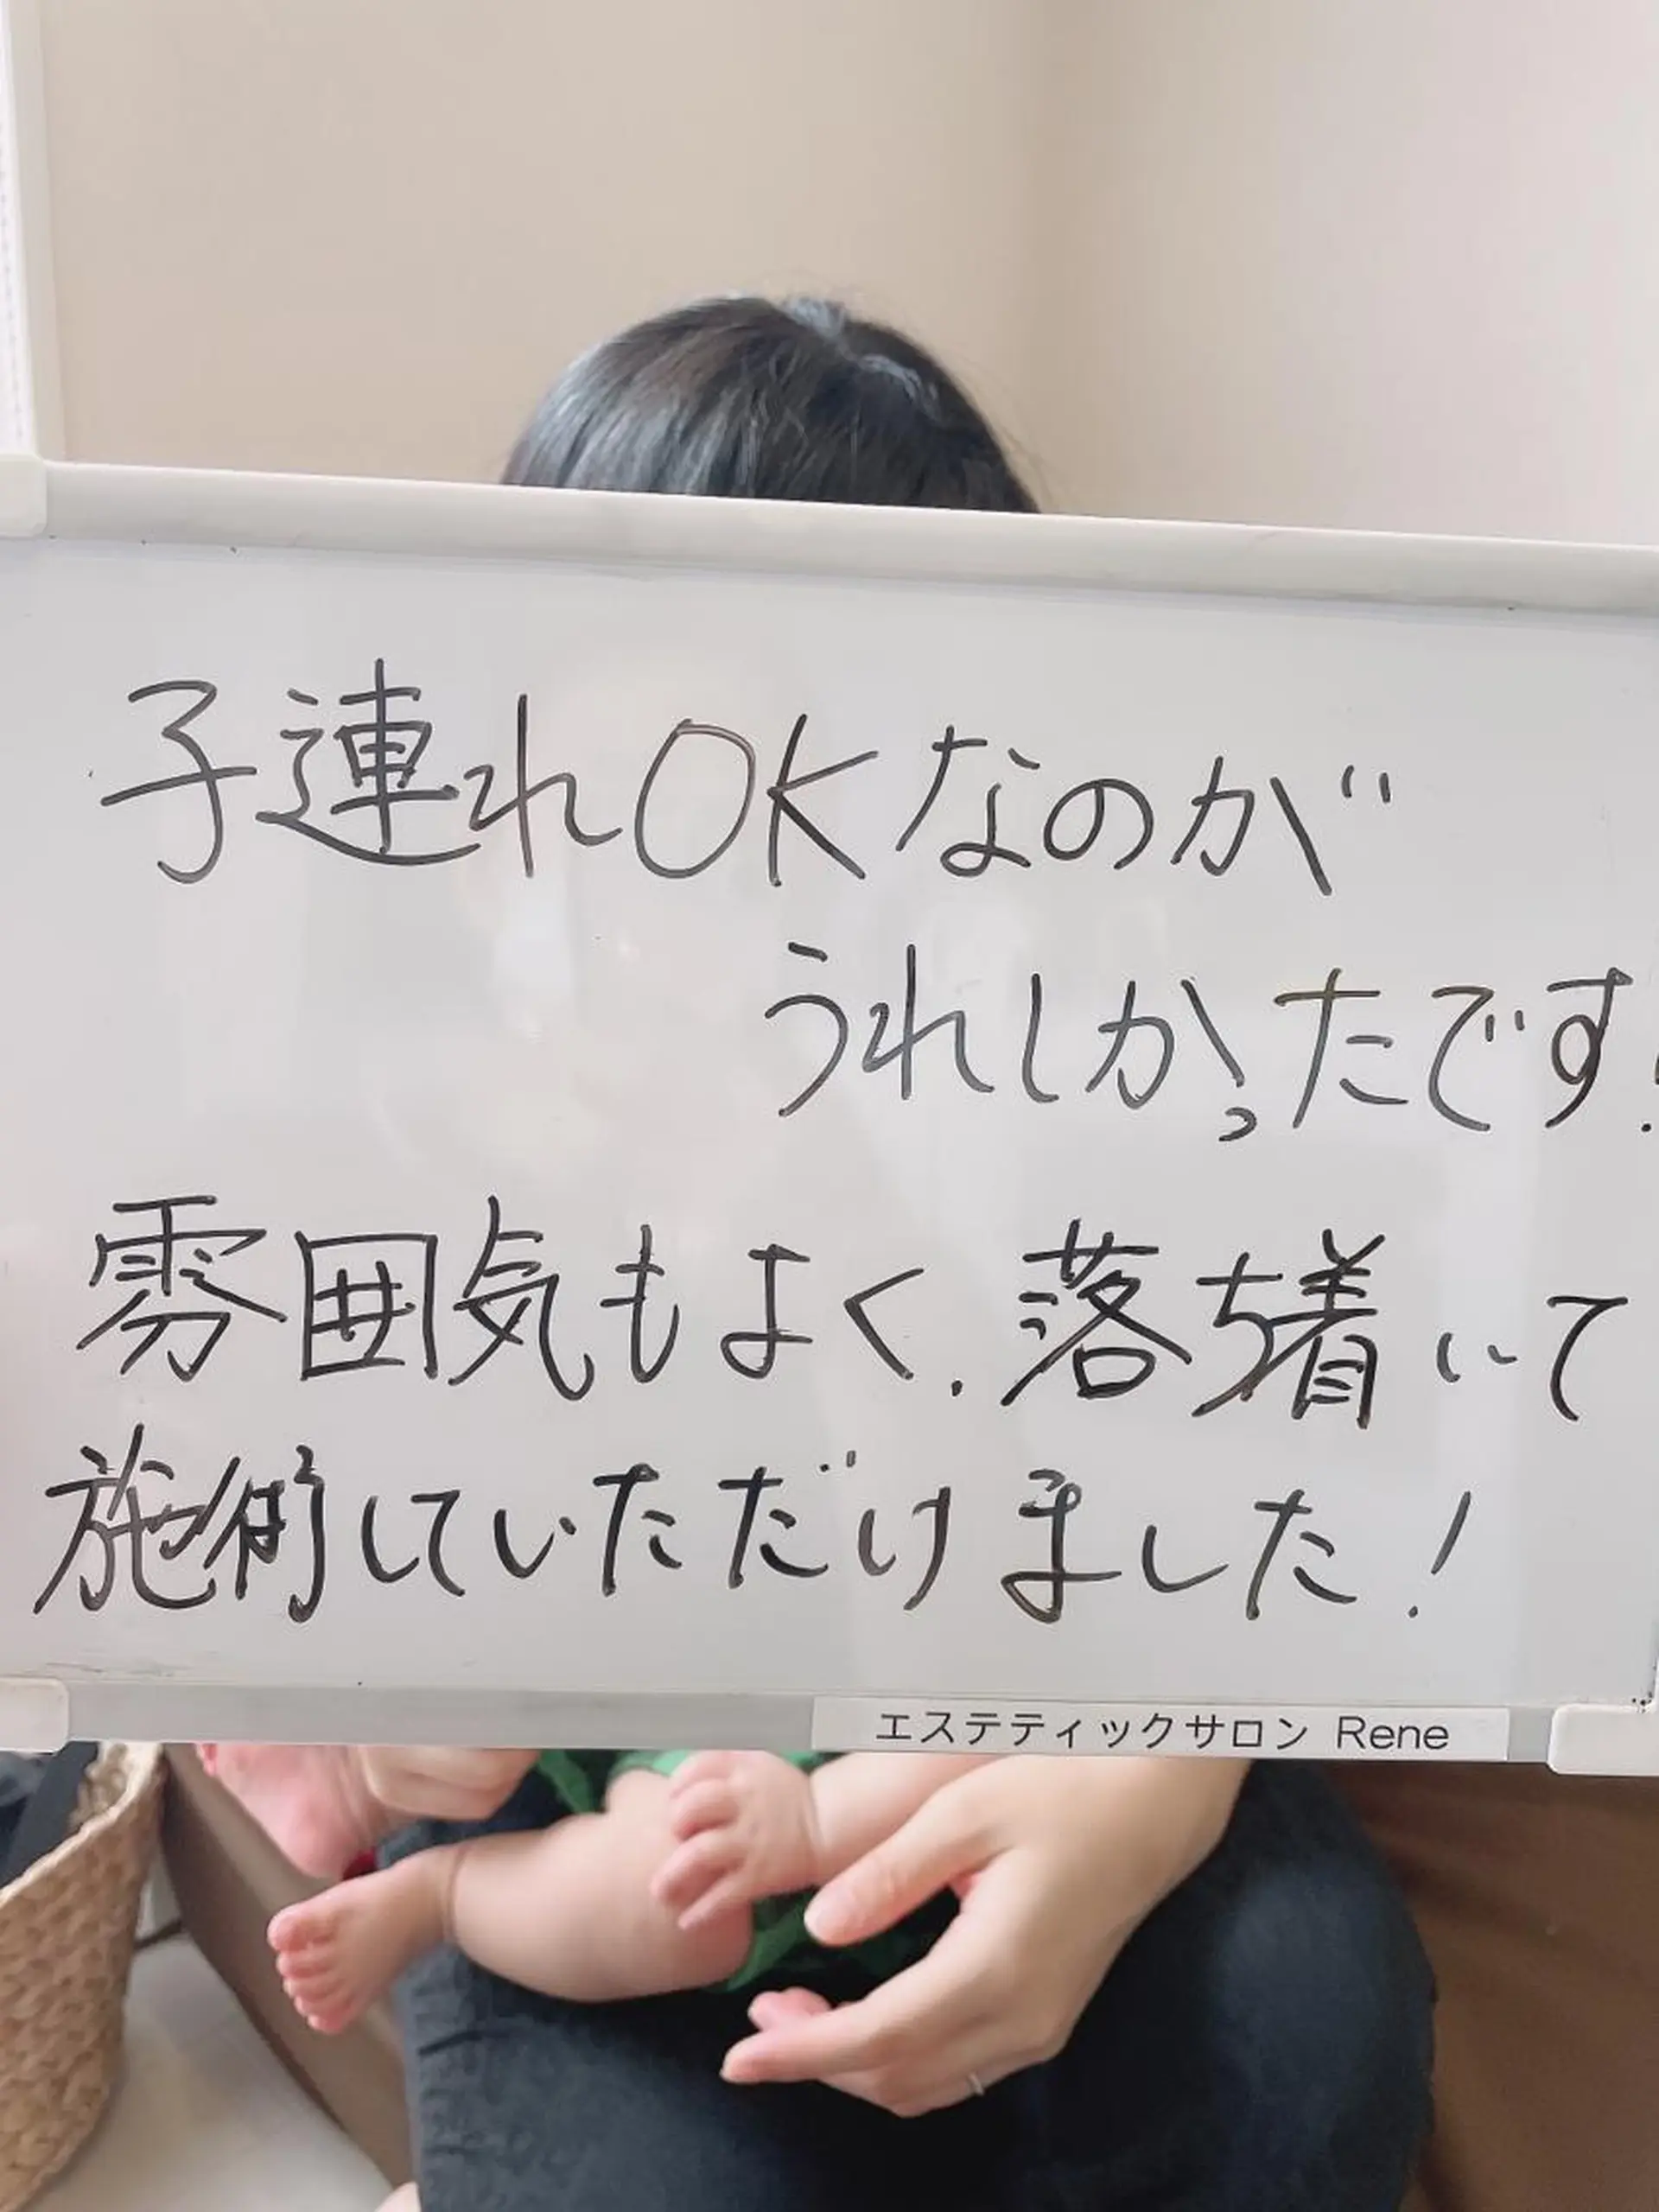 子連れOKなのが
うれしかったです!
雰囲気もよく.落ち着いて
施術していただけました!
エステティックサロン Rene